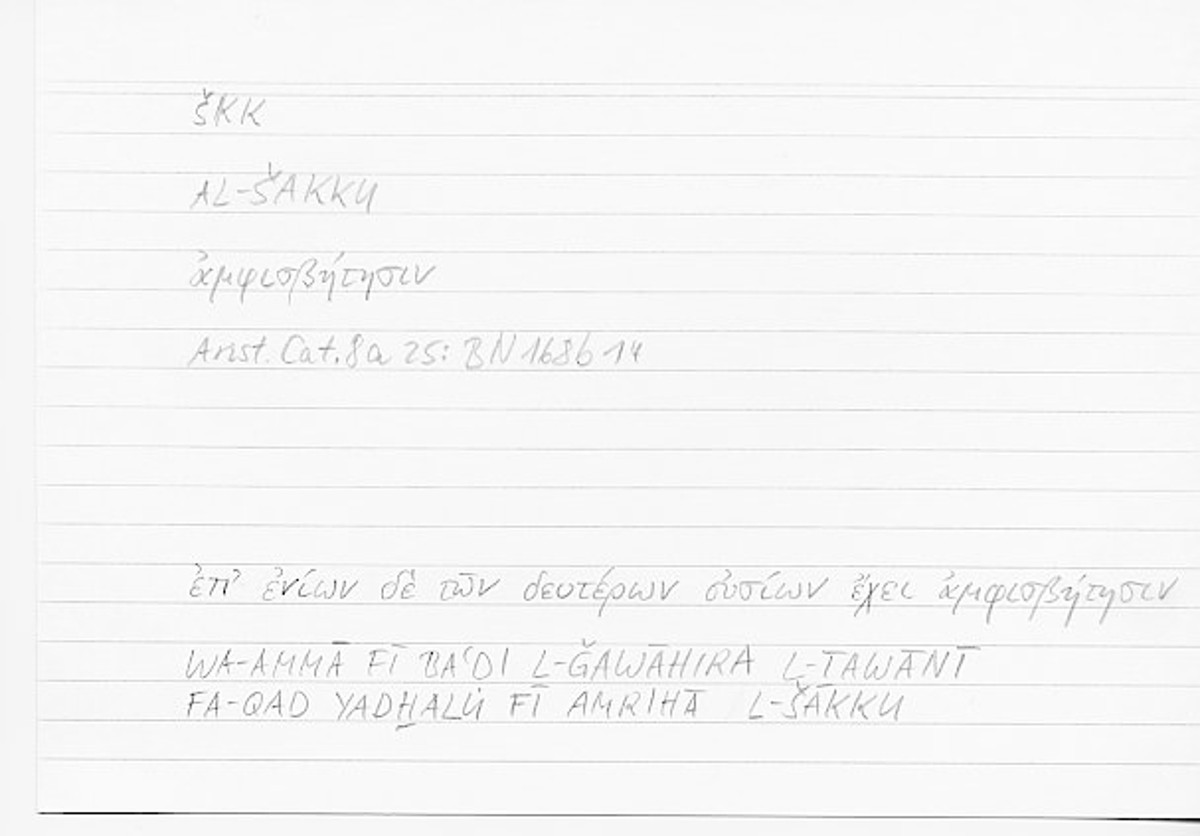 ŠKK
AL-ŠAKKU
ἀμφισβήτησιν
Arist. Cat. 8a 25: BN 168b 14
ἐπ' ἐνίων δὲ τῶν δευτέρων οὐσίων ἔχει ἀμφισβήτησιν
WA-AMMĀ FĪ BAʿDI L-ǦAWĀHIRA L-TAWĀNĪ
FA-QAD YADḪALU FĪ AMRIHĀ L-ŠAKKU